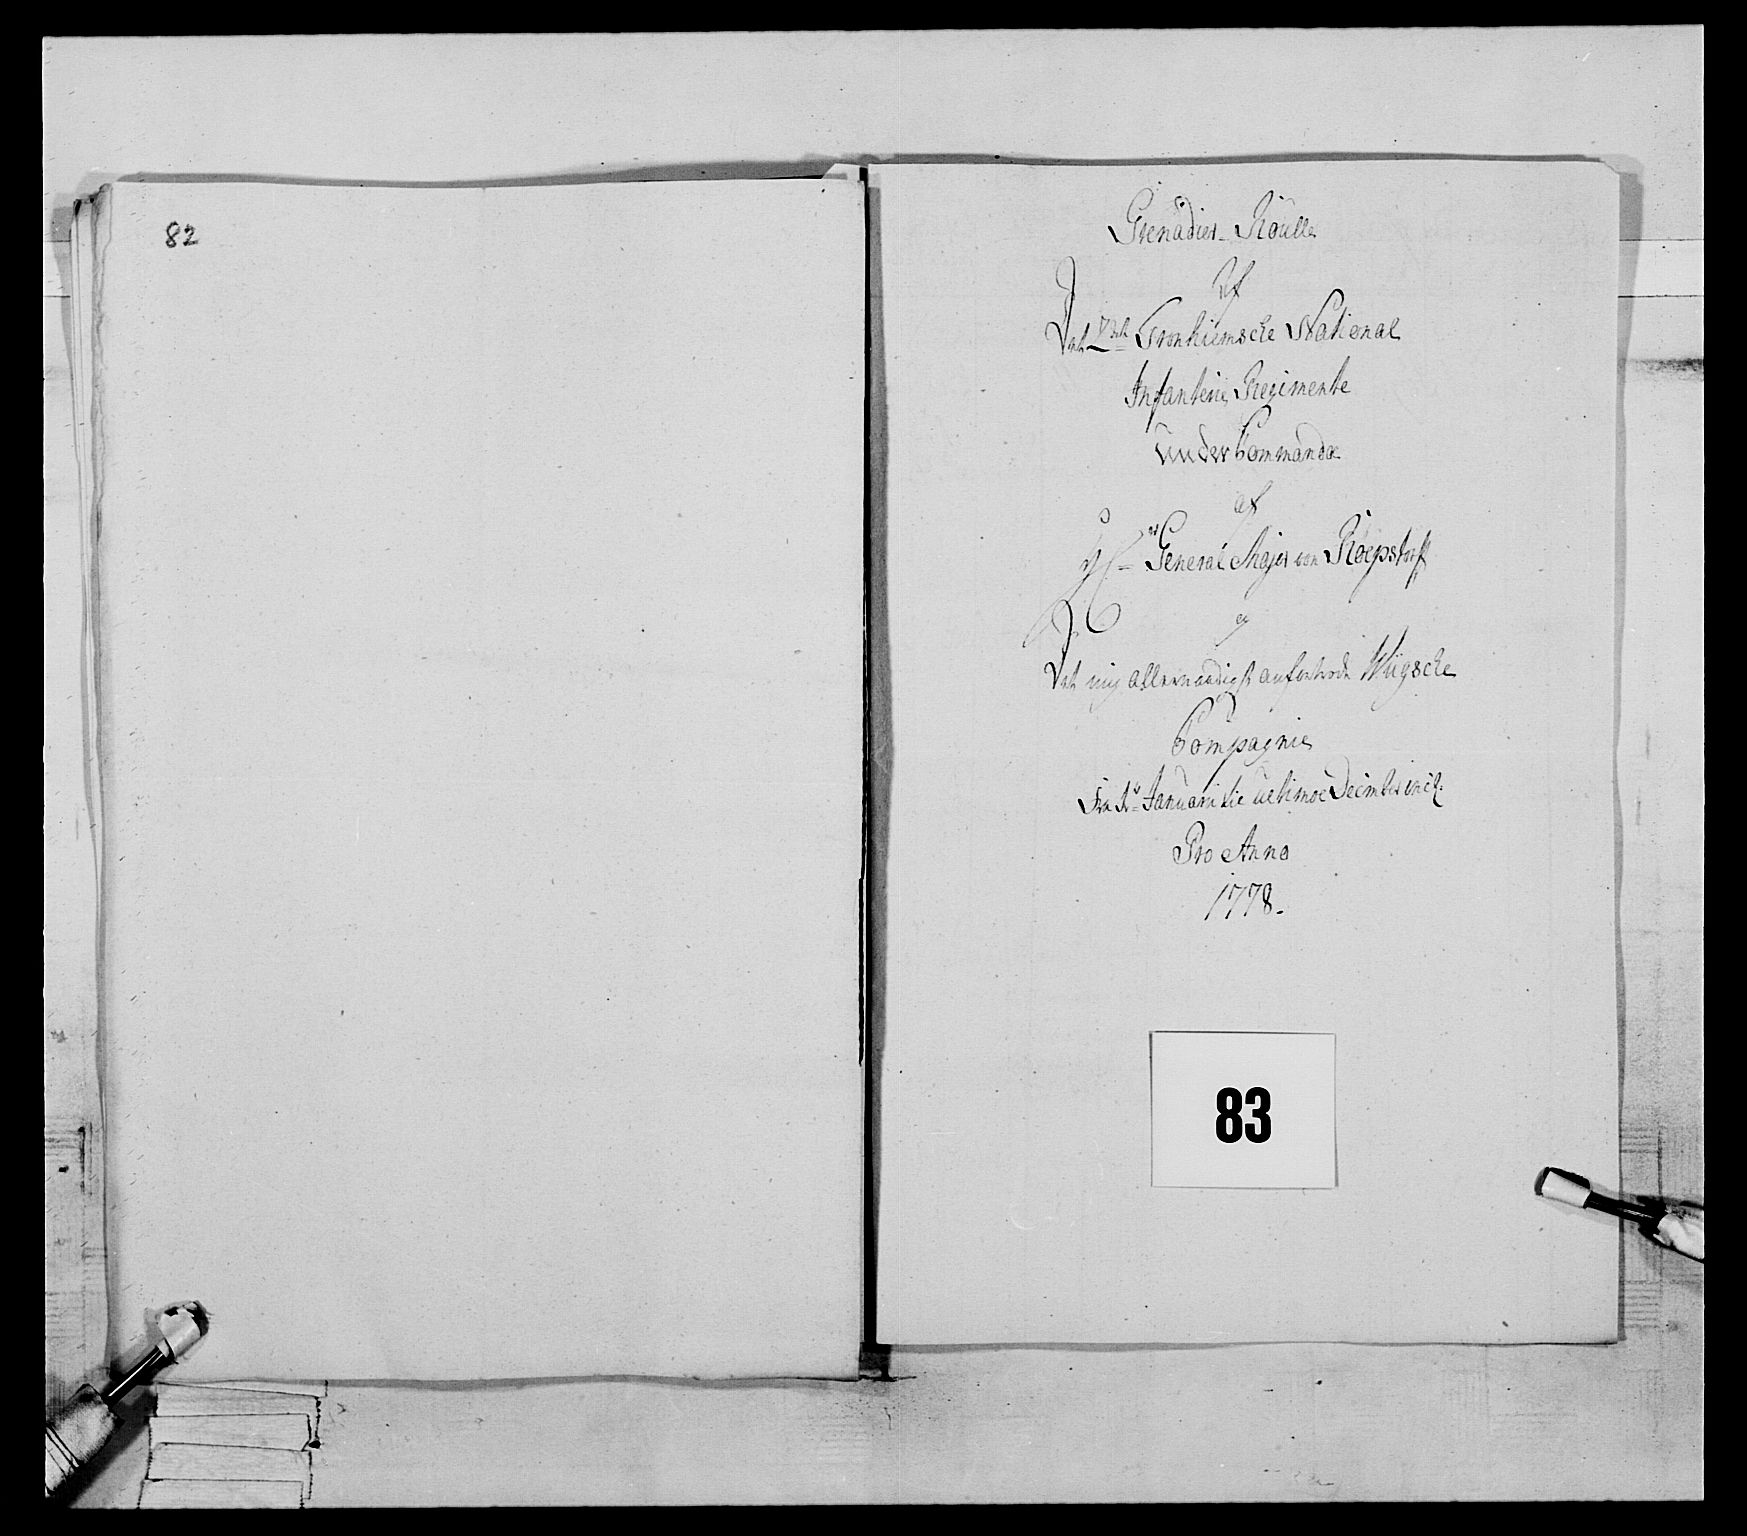 82
Grenadier-Roulle
Af
Det 2det Tronhiemsche National
Infanterie Regimente
under Commando
af
Hr General Major von Röepstorff
og
Det mig allernaadigst anfortroede Wügsche
Compagnie
Fra 1te Januari til ultimoe Decimber incl.
Pro Anno
1778.
83